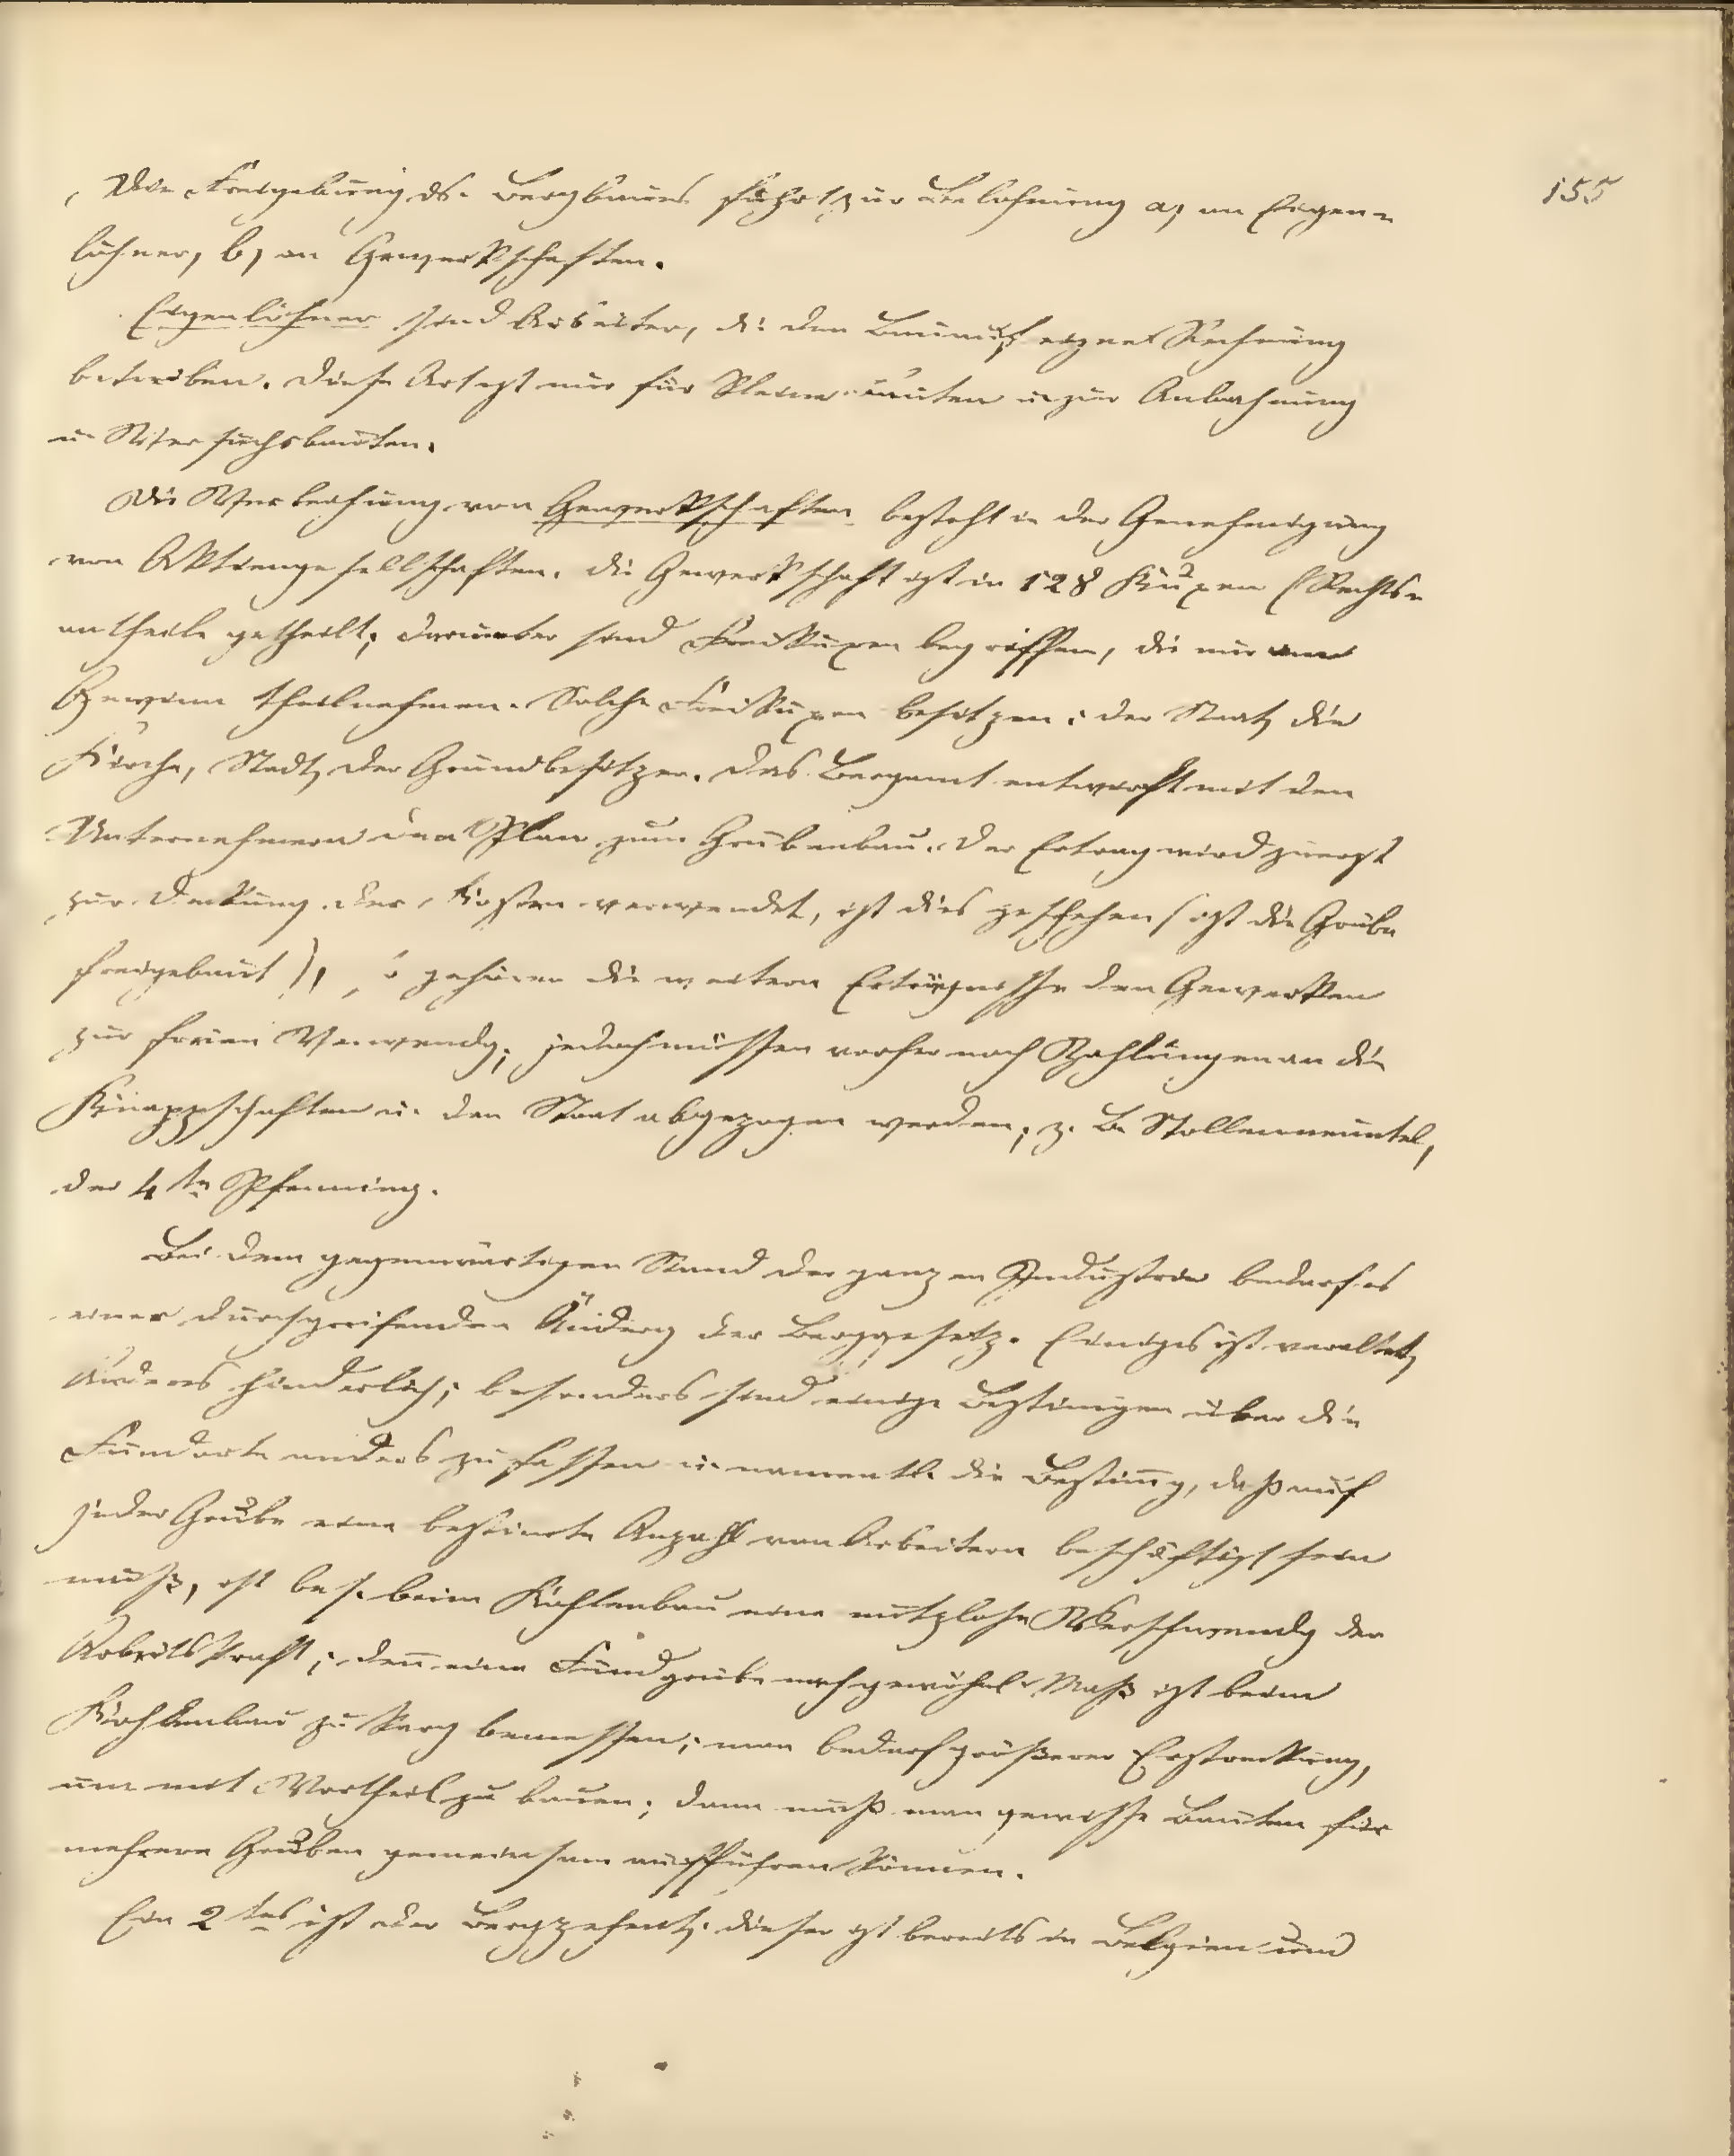 155
Die Freigebung ds. Bergbaues führt zur Belehnung a, an Eigen=
löhner, b, an Gewerkschaften.
Eigenlöhner sind Arbeiter, di den Bau auf eigne Rechnung
betreiben. Diese Art ist nur für kleine Bauten u. zur Anbahnung
u. Versuchsbauten.
Die Verleihung von Gewerkschaften besteht in der Genehmigung
von Aktiengesellschaften. Die Gewerkschaft ist in 128 Kuxen (Rechts=
antheile getheilt; darunter sind Freikuxen begriffen, die nur am
Gewinn theilnehmen. Solche Freikuxen besitzen: der Staat, die
Kirche, Stadt, der Grundbesitzer. Das Bergamt entwirft mit den
Unternehmern den Plan zum Grubenbau. Der Ertrag wird zuerst
zur Deckung der Kosten verwendet, ist dies geschehen (ist die Grube
freigebaut), so gehören die weitern Erträgnisse den Gewerken
zur freien Verwendg; jedoch müssen vorher noch Zahlungen an die
Knappschaften u. den Staat abgezogen werden, z. B. Stollenneuntel,
der 4te Pfenning.
Bei dem gegenwärtigen Stand der ganzen Industrie bedarf es
einer durchgreifenden Änderg der Berggesetze. Einiges ist veraltet,
Anderes hinderlich; besonders sind einige Bestimgen über die
Fundorte anders zu fassen u. namentl. die Bestimg, daß auf
jeder Grube eine bestimte Anzahl von Arbeitern beschäftigt sein
muß, ist bes. beim Kohlenbau eine nutzlose Verschwendg der
Arbeitskraft; den eine Fundgrube nach gewöhnl. Maß ist beim
Kohlenbau zu karg bemessen; man bedarf größerer Erstreckung,
um mit Vortheil zu bauen; dann muß man gewisse Bauten für
mehrere Gruben gemeinsam ausführen können.
Ein 2tes ist der Bergzehent; dieser ist bereits in Belgien und